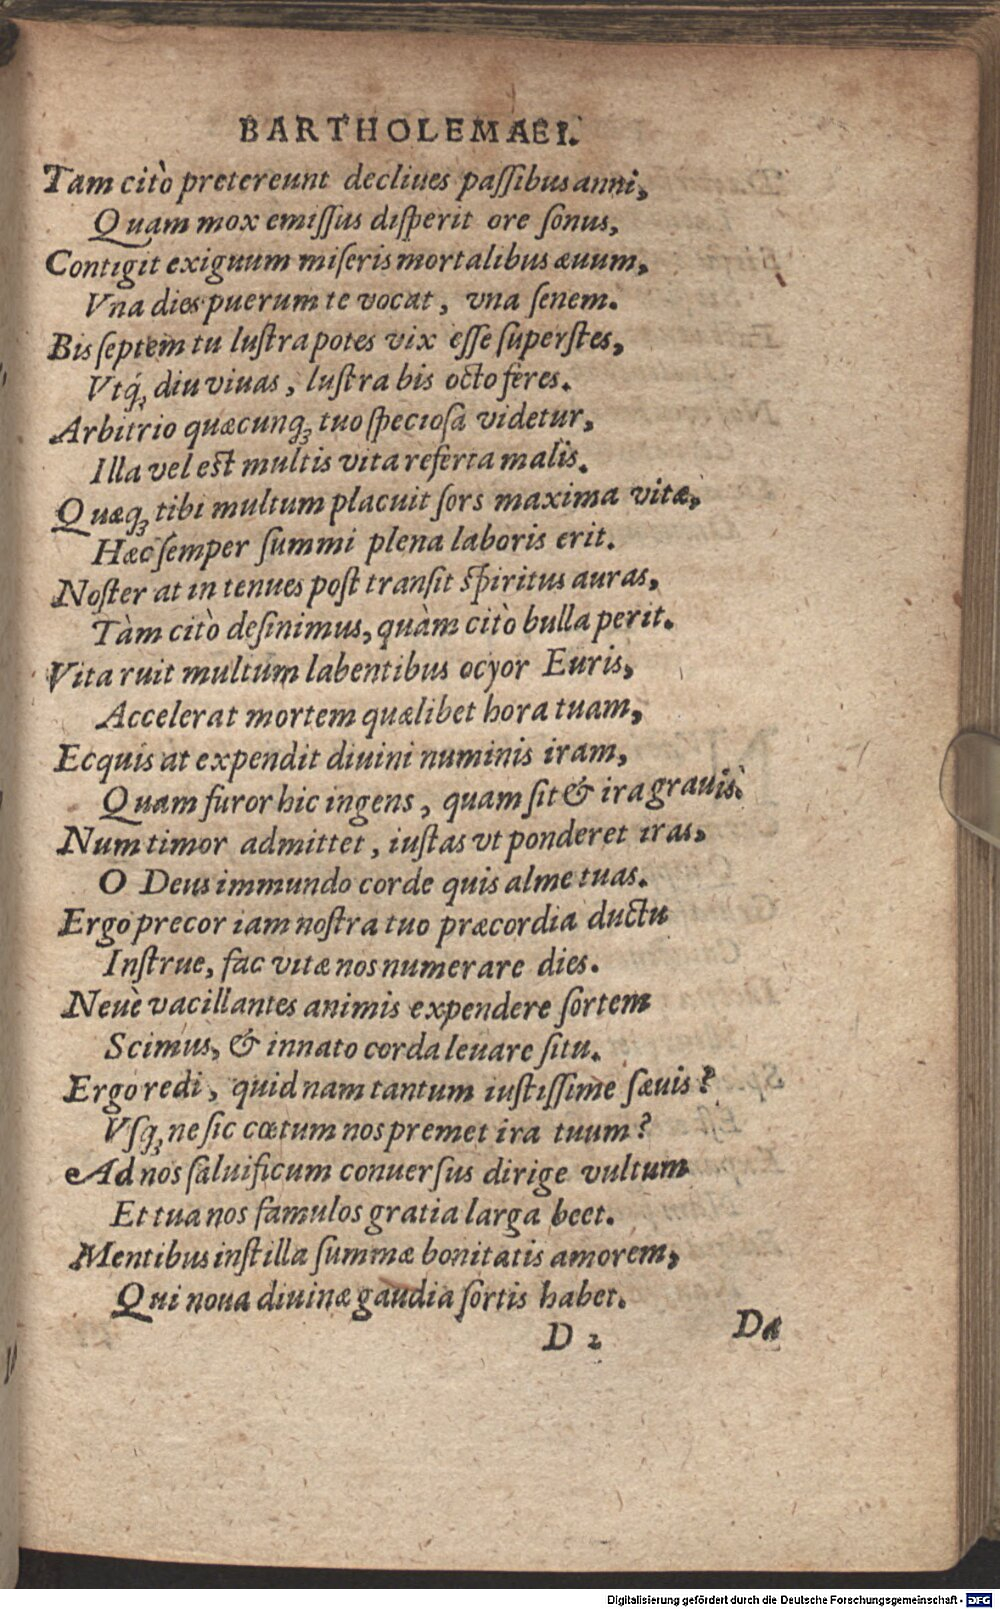 BARTHOLEMAEI.
Tam citò pretereunt decliues paſſibus anni,
Quam mox emiſſus diſperit ore ſonus,
Contigit exiguum miſeris mortalibus æuum,
Vna dies puerum te vocat, vna ſenem.
Bis ſeptem tu luſtra potes vix eſſe ſuperſtes,
Vtq́ꝫ diu viuas, luſtra bis octo feres.
Arbitrio quæcunqꝫ tuo ſpecioſa videtur,
Illa vel eſt multis vita referta malis.
Quæqꝫ tibi multum placuit ſors maxima vitæ,
Hæc ſemper ſummi plena laboris erit.
Noſter at in tenues poſt tranſit ſpiritus auras,
Tàm citò deſinimus, quàm citò bulla perit.
Vita ruit multum labentibus ocyor Euris,
Accelerat mortem quælibet hora tuam,
Ecquis at expendit diuini numinis iram,
Quam furor hic ingens, quam ſit & ira grauis.
Num timor admittet, iuſtas vt ponderet iras,
O Deus immundo corde quis alme tuas.
Ergo precor iam noſtra tuo præcordia ductu
Inſtrue, fac vitæ nos numerare dies.
Neuè vacillantes animis expendere ſortem
Scimus, & innato corda leuare ſitu.
Ergo redi, quid nam tantum iuſtiſſime ſæuis?
Vſq́ꝫ ne ſic cœtum nos premet ira tuum?
Ad nos ſaluificum conuerſus dirige vultum
Et tua nos famulos gratia larga beet.
Mentibus inſtilla ſummæ bonitatis amorem,
Qui noua diuinæ gaudia ſortis habet.
D 2 Da
Digitalisierung gefördert durch die Deutsche Forschungsgemeinschaft - DFG